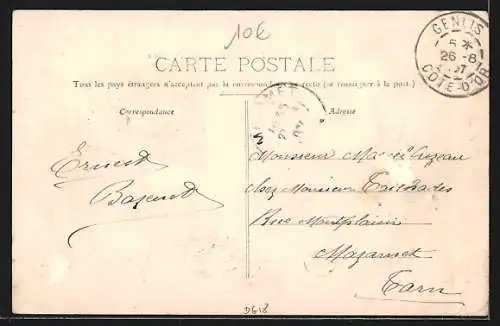 10€
CARTE POSTALE
Tous les pays étrangers n'acceptent pas la correspondance au recto (se renseigner à la poste.)
Correspondance
Adresse
GENLIS
5 *
26 - 8
07
COTE-D'OR
Ernest
Monsieur
Chez Monsieur
Rue Montplaisir
Mazamet
Tarn